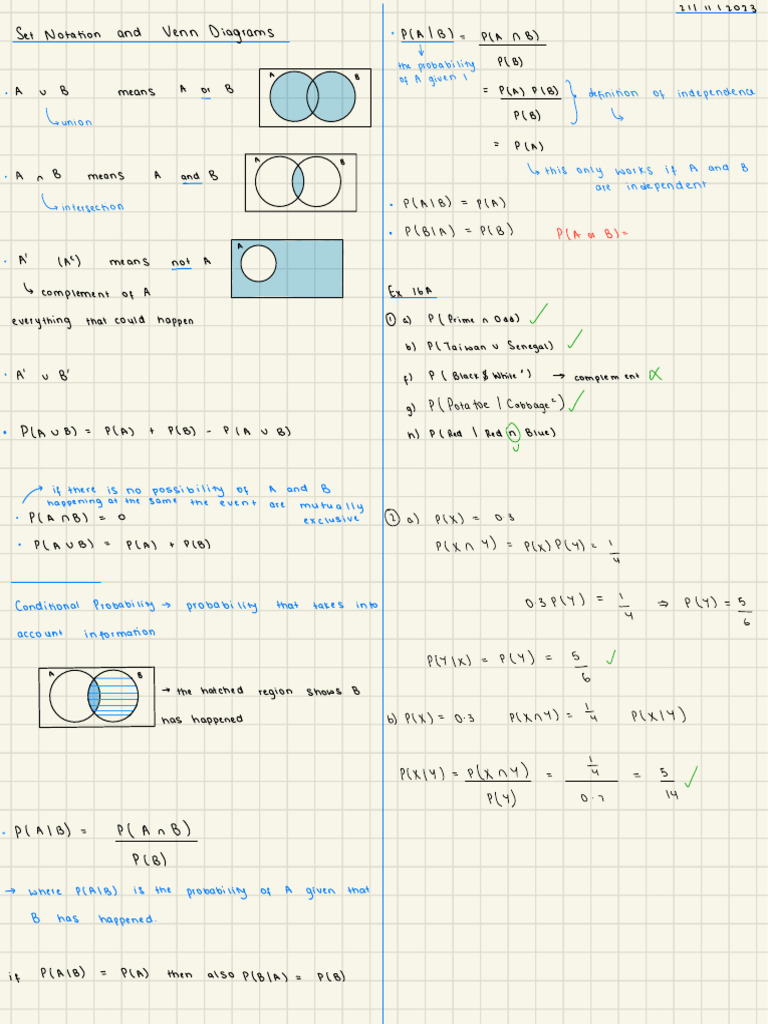 Set Notation and Venn Diagrams
· A ∪ B means A or B
A B
↳ union
· A ∩ B means A and B
A B
↳ intersection
· A' (Aᶜ) means not A
A
↳ complement of A
everything that could happen
· A' ∪ B'
· P(A ∪ B) = P(A) + P(B) - P(A ∪ B)
→ if there is no possibility of A and B
happening at the same the event are mutually
exclusive
· P(A ∩ B) = 0
· P(A ∪ B) = P(A) + P(B)
Conditional Probability → probability that takes into
account information
A B
→ the hatched region shows B
has happened
· P(A|B) = P(A ∩ B) / P(B)
→ where P(A|B) is the probability of A given that
B has happened.
if P(A|B) = P(A) then also P(B|A) = P(B)
21/11/2023
· P(A|B) = P(A ∩ B) / P(B)
↓
the probability
of A given 1
= P(A) P(B) / P(B) } definition of independence
↳
= P(A)
↳ this only works if A and B
are independent
· P(A|B) = P(A)
· P(B|A) = P(B) P(A or B)=
Ex 16A
① a) P(Prime ∩ Odd) ✓
b) P(Taiwan ∪ Senegal) ✓
f) P(Black $ White') → complement ∝
g) P(Potatoe | Cabbage²) ✓
h) P(Red | Red ∩ Blue)
∪
② a) P(X) = 0.3
P(X ∩ Y) = P(X) P(Y) = 1/4
0.3 P(Y) = 1/4 ⇒ P(Y) = 5/6
P(Y|X) = P(Y) = 5/6 ✓
b) P(X) = 0.3 P(X∩Y) = 1/4 P(X|Y)
P(X|Y) = P(X ∩ Y) / P(Y) = 1/4 / 0.7 = 5/14 ✓